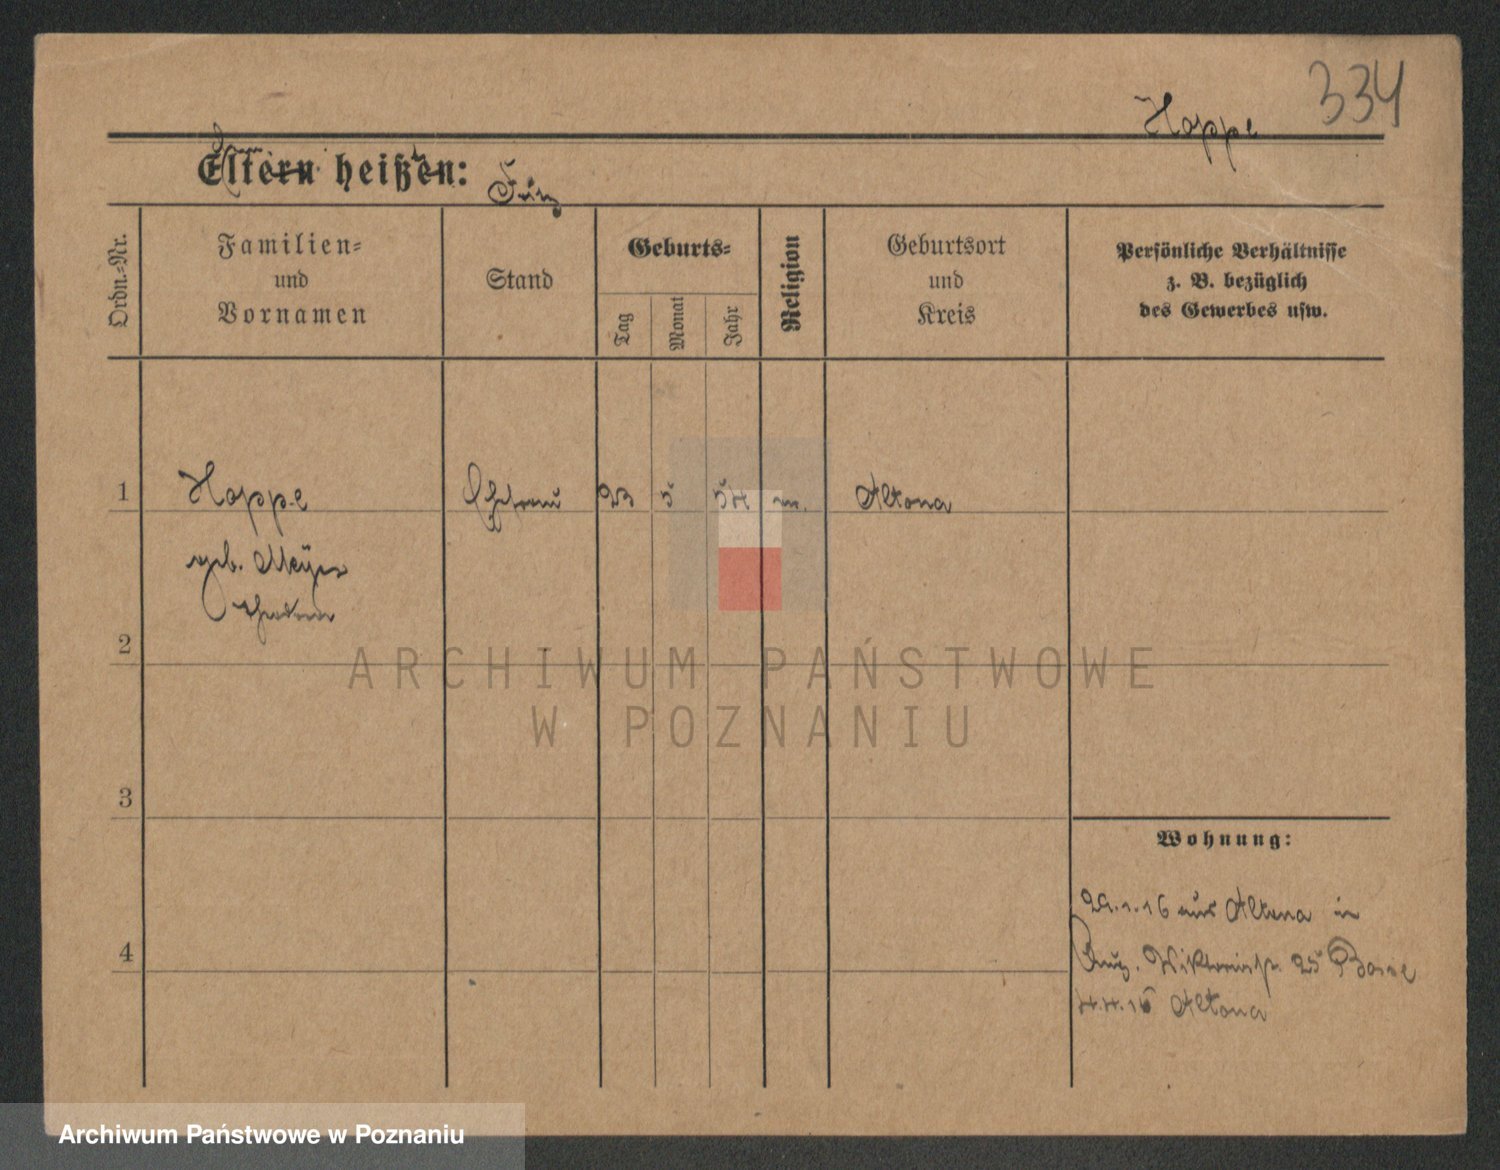 334
Hoppe
Eltern heißen:
Ordn.=Nr.
Familien=
und
Vornamen
Stand
Geburts=
Tag
Monat
Jahr
Religion
Geburtsort
und
Kreis
Persönliche Verhältnisse
z. B. bezüglich
des Gewerbes usw.
1 Hoppe Ehefrau 23 5 54 Altona
geb. Meyer
2
ARCHIWUM PAŃSTWOWE
W POZNANIU
3
Wohnung:
29.1.16 aus Altona in
25
4
4.4.16 Altona
Archiwum Państwowe w Poznaniu